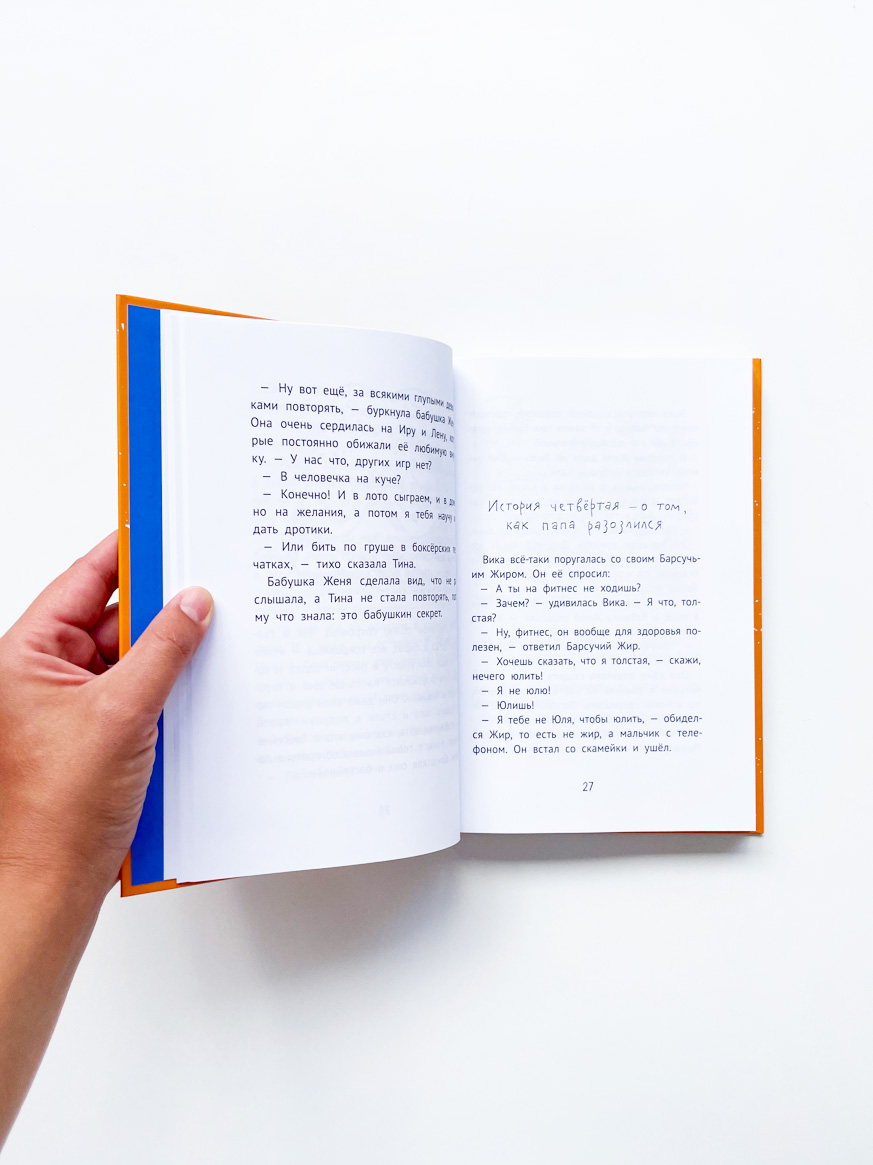 — Ну вот ещё, за всякими глупыми
ками повторять, — буркнула бабушка
Она очень сердилась на Иру и Лену,
рые постоянно обижали её любимую
ку. — У нас что, других игр нет?
— В человечка на куче?
— Конечно! И в лото сыграем, и в
но на желания, а потом я тебя научу
дать дротики.
— Или бить по груше в боксёрских
чатках, — тихо сказала Тина.
Бабушка Женя сделала вид, что не
слышала, а Тина не стала повторять,
му что знала: это бабушкин секрет.
История четвёртая – о том,
как папа разозлился
Вика всё-таки поругалась со своим Барсучь-
им Жиром. Он её спросил:
— А ты на фитнес не ходишь?
— Зачем? — удивилась Вика. — Я что, тол-
стая?
— Ну, фитнес, он вообще для здоровья по-
лезен, — ответил Барсучий Жир.
— Хочешь сказать, что я толстая, — скажи,
нечего юлить!
— Я не юлю!
— Юлишь!
— Я тебе не Юля, чтобы юлить, — обидел-
ся Жир, то есть не жир, а мальчик с теле-
фоном. Он встал со скамейки и ушёл.
27